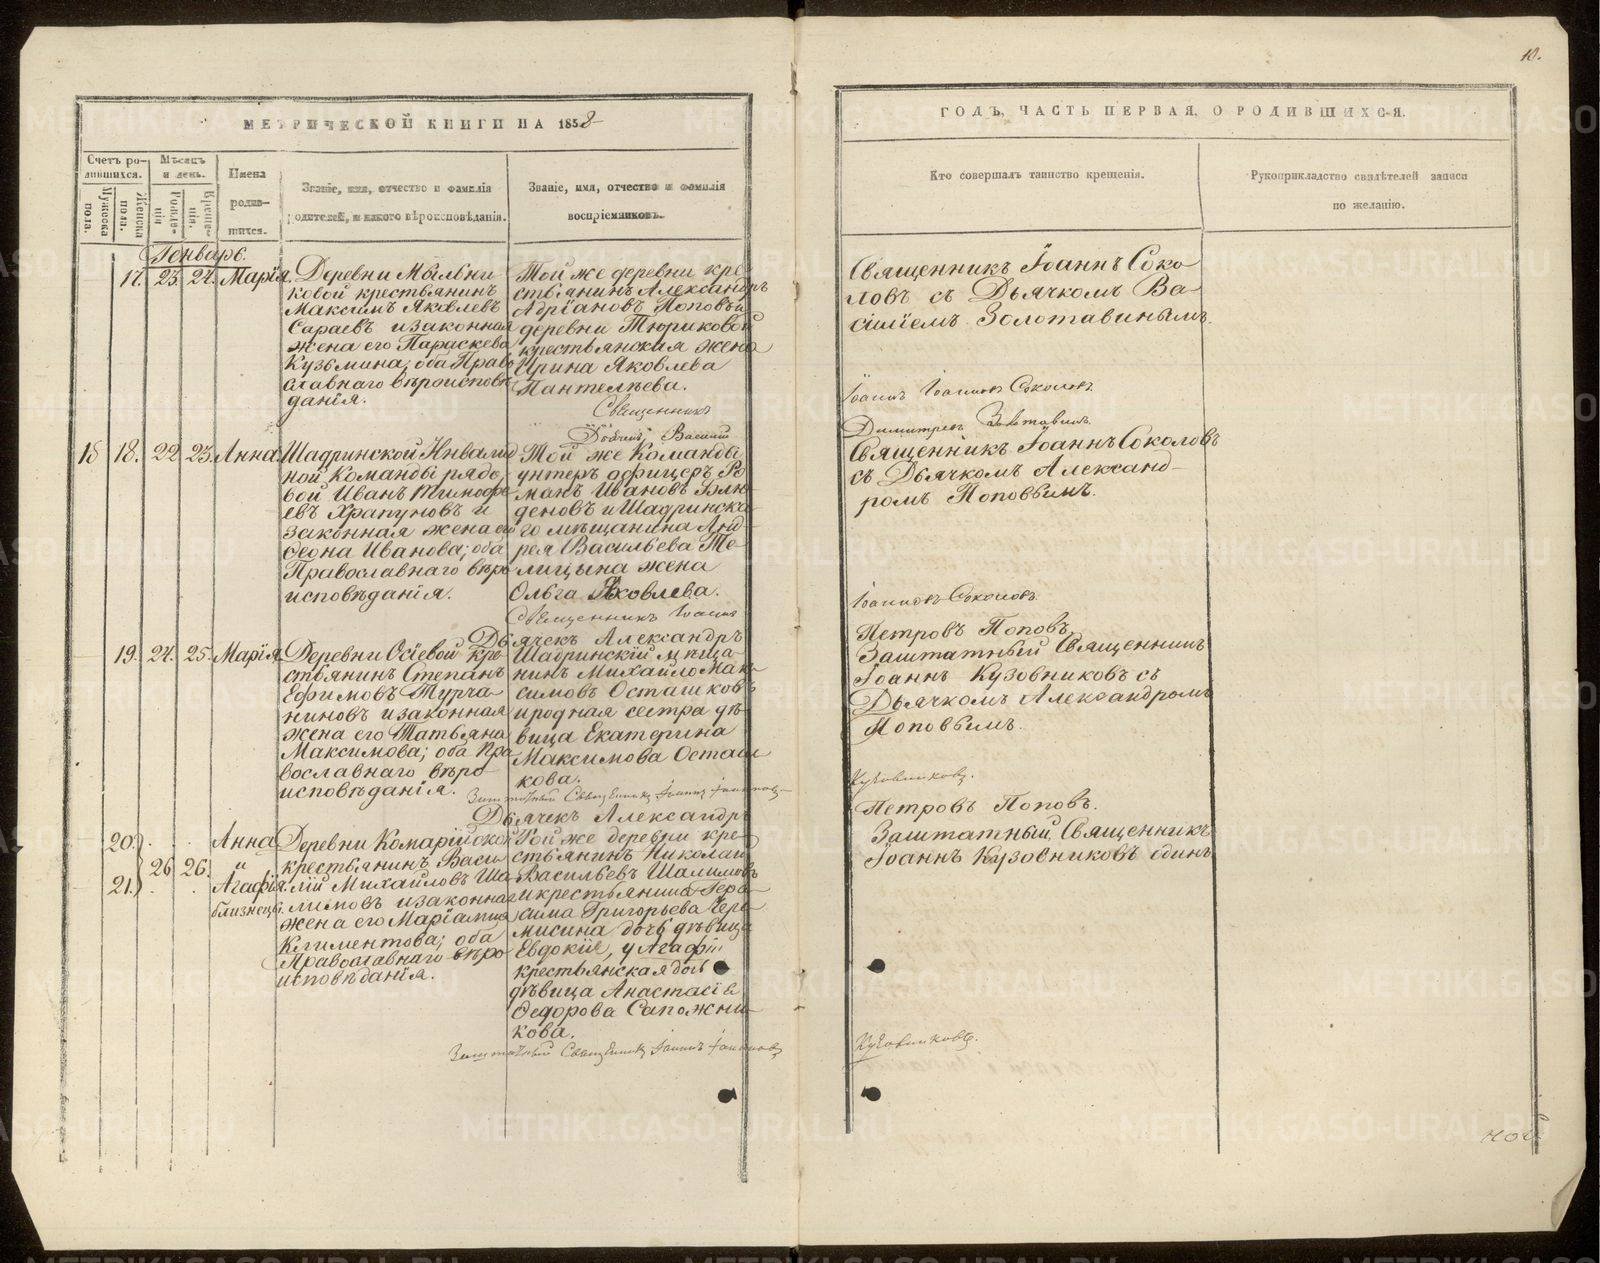 10.
МЕТРИЧЕСКОЙ КНИГИ НА 1858
ГОДЪ, ЧАСТЬ ПЕРВАЯ, О РОДИВШИХСЯ.
Счетъ ро-
дившихся.
Мужеска
пола.
Женска
пола.
Мѣсяцъ
и день.
Рожде-
нія
Креще-
нія.
Имена
родив-
шихся.
Званіе, имя, отчество и фамилія
родителей, и какого вѣроисповѣданія.
Званіе, имя, отчество и фамилія
воспріемниковъ.
Кто совершалъ таинство крещенія.
Рукоприкладство свидѣтелей записи
по желанію.
Генварь.
17. 23. 24. Марія.
Деревни Мыльни
ковой крестьянинъ
Максимъ Яковлевъ
Сараевъ и законная
жена его Параскева
Кузьмина; оба Право
славнаго вѣроисповѣ
данія.
Той же деревни кре
стьянинъ Александръ
Адріановъ Поповъ и
деревни Тюриковой
крестьянская жена
Ирина Яковлева
Пантелѣева.
Священникъ
Дьячекъ Василій
Священникъ Іоаннъ Соко
ловъ съ Дьячкомъ Ва-
силіемъ Золотавинымъ.
Іоаннъ Іоанновъ Соколовъ
18 18. 22 23. Анна.
Шадринской Инвалид
ной Команды рядо
вой Иванъ Тимофе
евъ Храпуновъ и
законная жена его
Ѳеона Иванова; оба
Православнаго вѣро
исповѣданія.
Той же Команды
унтеръ офицеръ Ро
манъ Ивановъ Блю
деновъ и Шадринска
го мѣщанина Анд-
рея Васильева Те-
лицына жена
Ольга Яковлева.
Священникъ Іоаннъ
Дьячекъ Александръ
Священникъ Іоаннъ Соколовъ
съ Дьячкомъ Александ-
ромъ Поповымъ.
Іоанновъ Соколовъ.
Петровъ Поповъ
19. 24. 25. Марія.
Деревни Осіевой кре
стьянинъ Степанъ
Ефимовъ Турча
ниновъ и законная
жена его Татьяна
Максимова; оба Пра
вославнаго вѣро
исповѣданія.
Шадринскій мѣща
нинъ Михайло Мак
симовъ Осташковъ
и родная сестра дѣ
вица Екатерина
Максимова Осташ
кова.
Заштатный Священникъ Іоаннъ Іоанновъ
Дьячекъ Александръ
Заштатный Священникъ
Іоаннъ Кузовниковъ съ
Дьячкомъ Александромъ
Поповымъ.
Кузовниковъ.
Петровъ Поповъ.
20. Анна
и
26 26.
21. Агафія.
близнецы.
Деревни Комарійской
крестьянинъ Васи
лій Михайловъ Ша
лимовъ и законная
жена его Маріамна
Климентова; оба
Православнаго вѣро
исповѣданія.
Той же деревни кре
стьянинъ Николай
Васильевъ Шалимовъ
и крестьянина Гера
сима Григорьева Чере
мисина дочь дѣвица
Евдокіе, у Агафіи
крестьянская дочь
дѣвица Анастасія
Ѳедорова Сапожни
кова.
Заштатный Священникъ Іоаннъ Іоанновъ
Заштатный Священникъ
Іоаннъ Кузовниковъ одинъ
Кузовниковъ.
METRIKI.GASO-URAL.RU